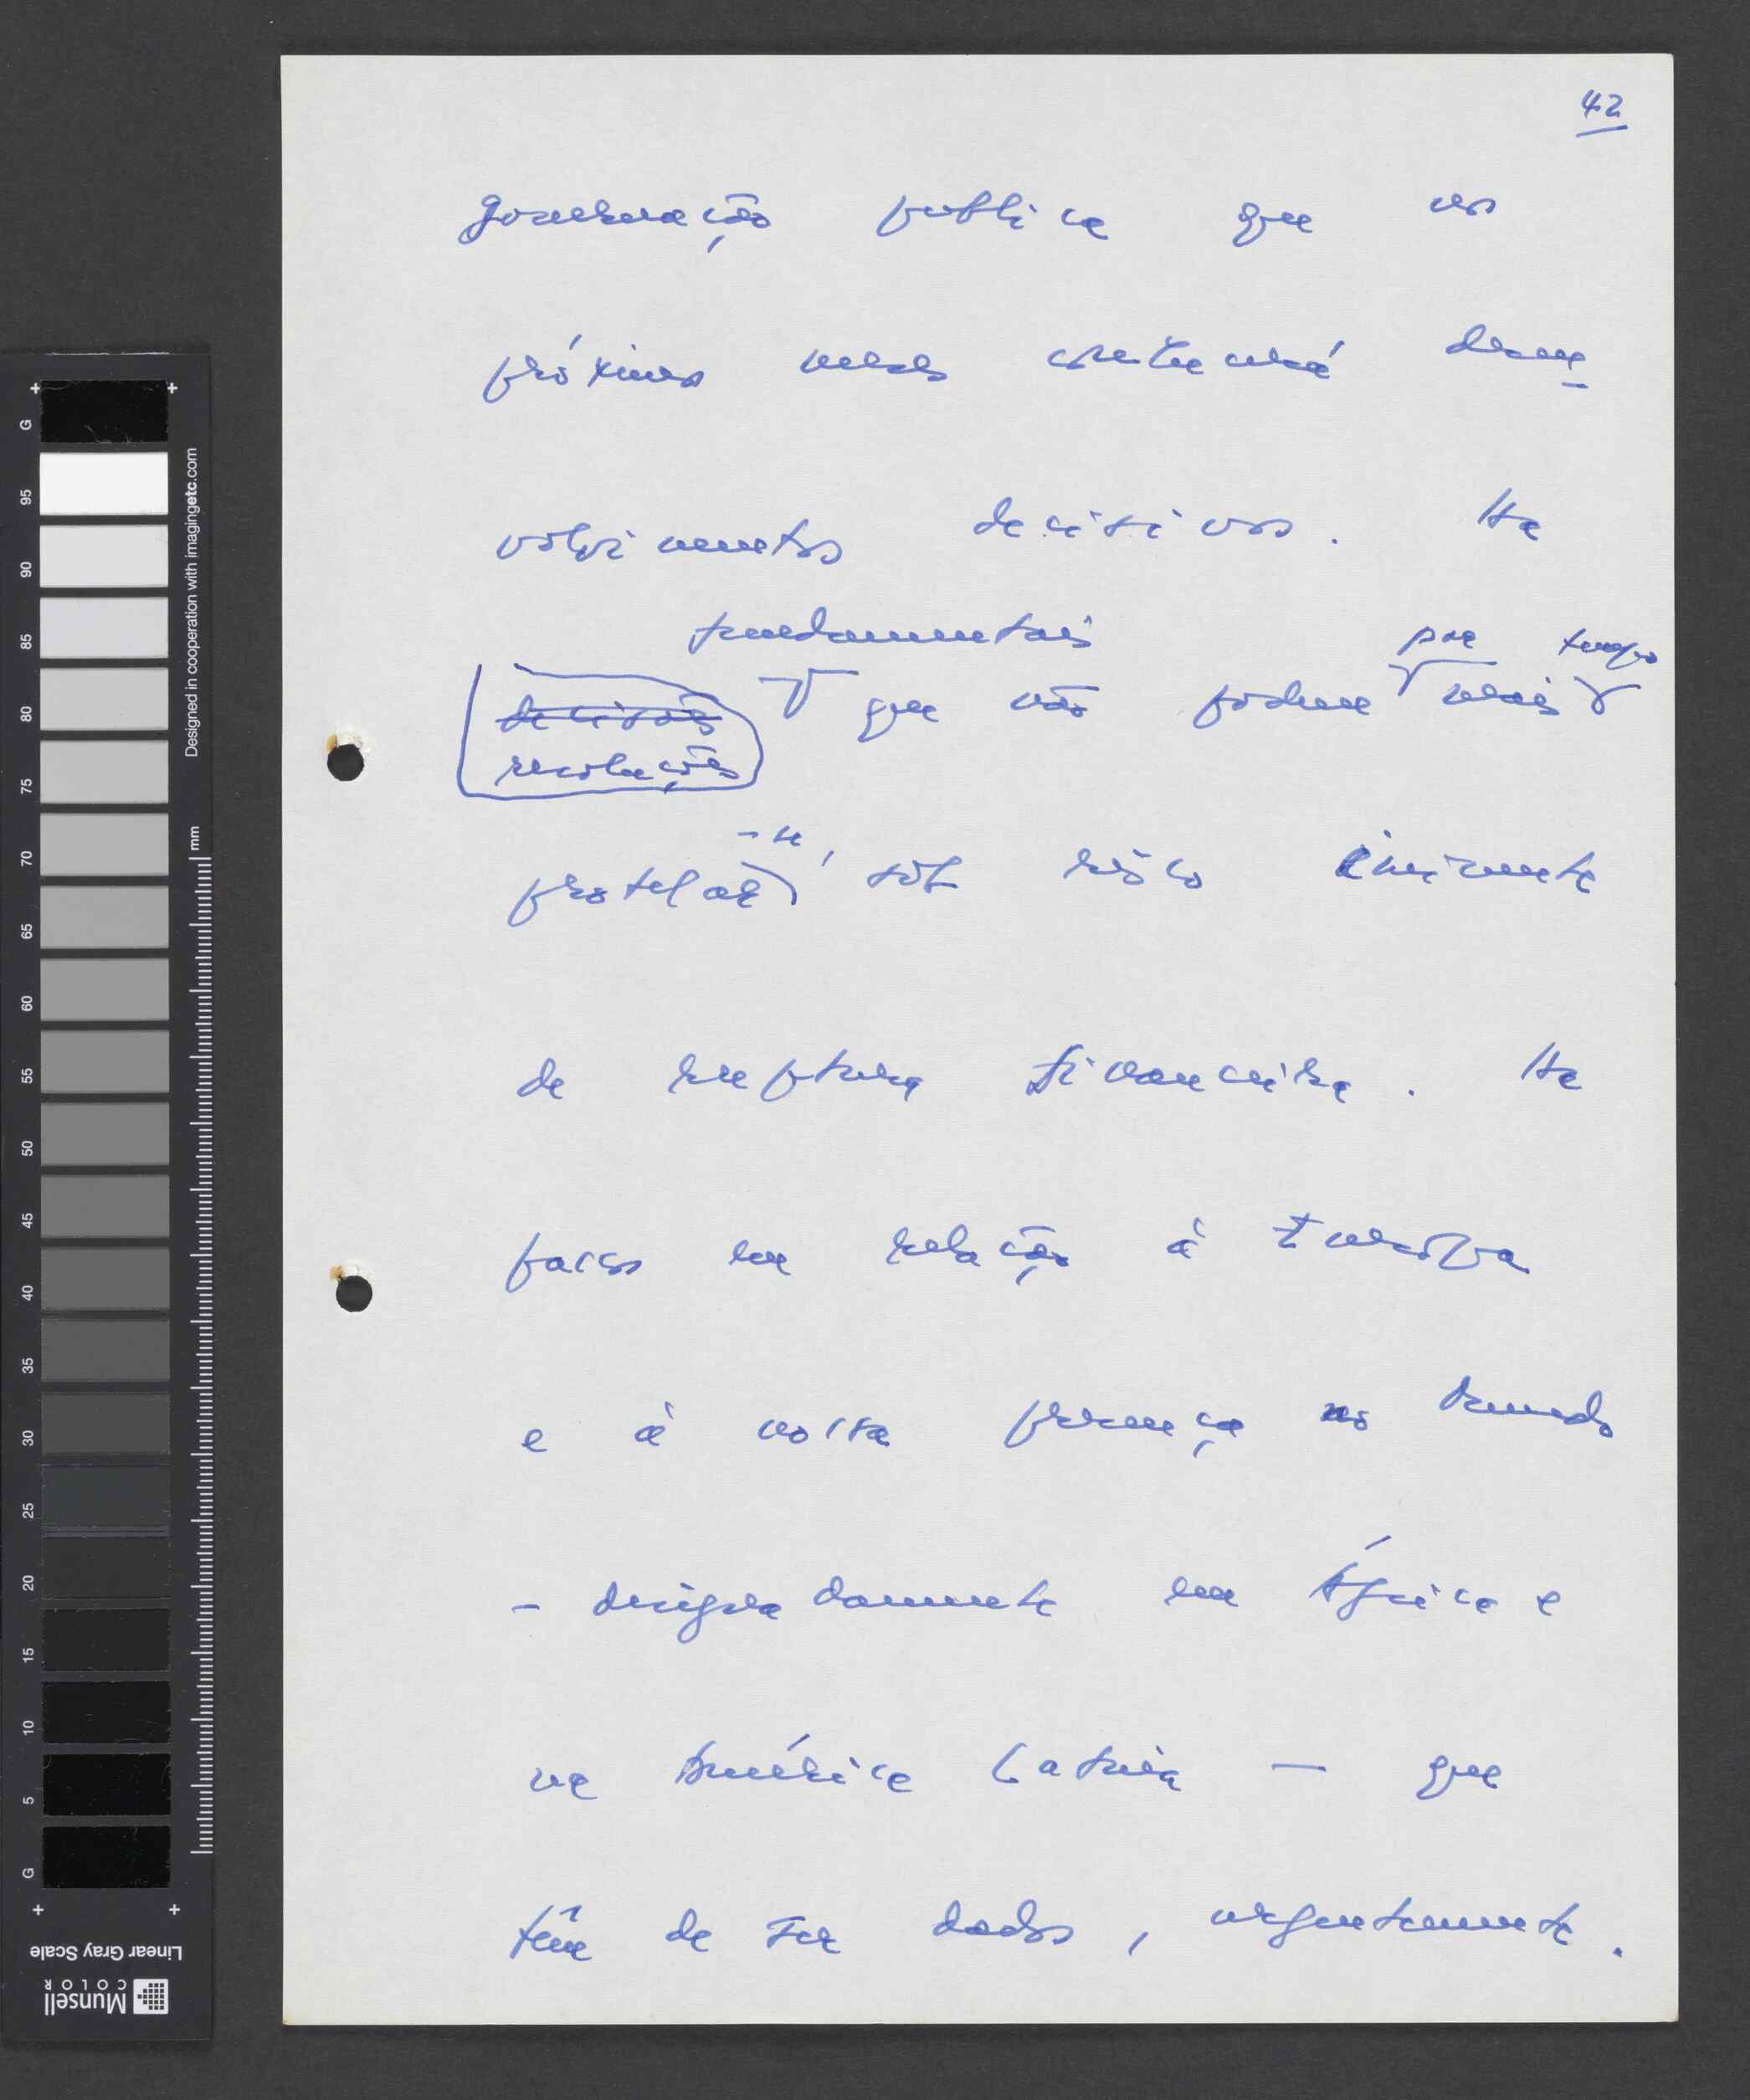 42
governação publica que nos
próximos meses conhecerá desen_
volvimentos decisivos. Ha
fundamentais por tempo
decisões que não podem mais
resoluções
protelar -se, sob risco iminente
de ruptura financeira. Ha
passos em relação à Europa
e à nossa presença no Mundo
- designadamente em África e
na América Latina — que
têm de ser dados, urgentemente.
G
95
90
85
80
75
70
65
60
55
50
45
40
35
30
25
20
15
10
5
G
mm
Designed in cooperation with imagingetc.com
Linear Gray Scale
Munsell
COLOR